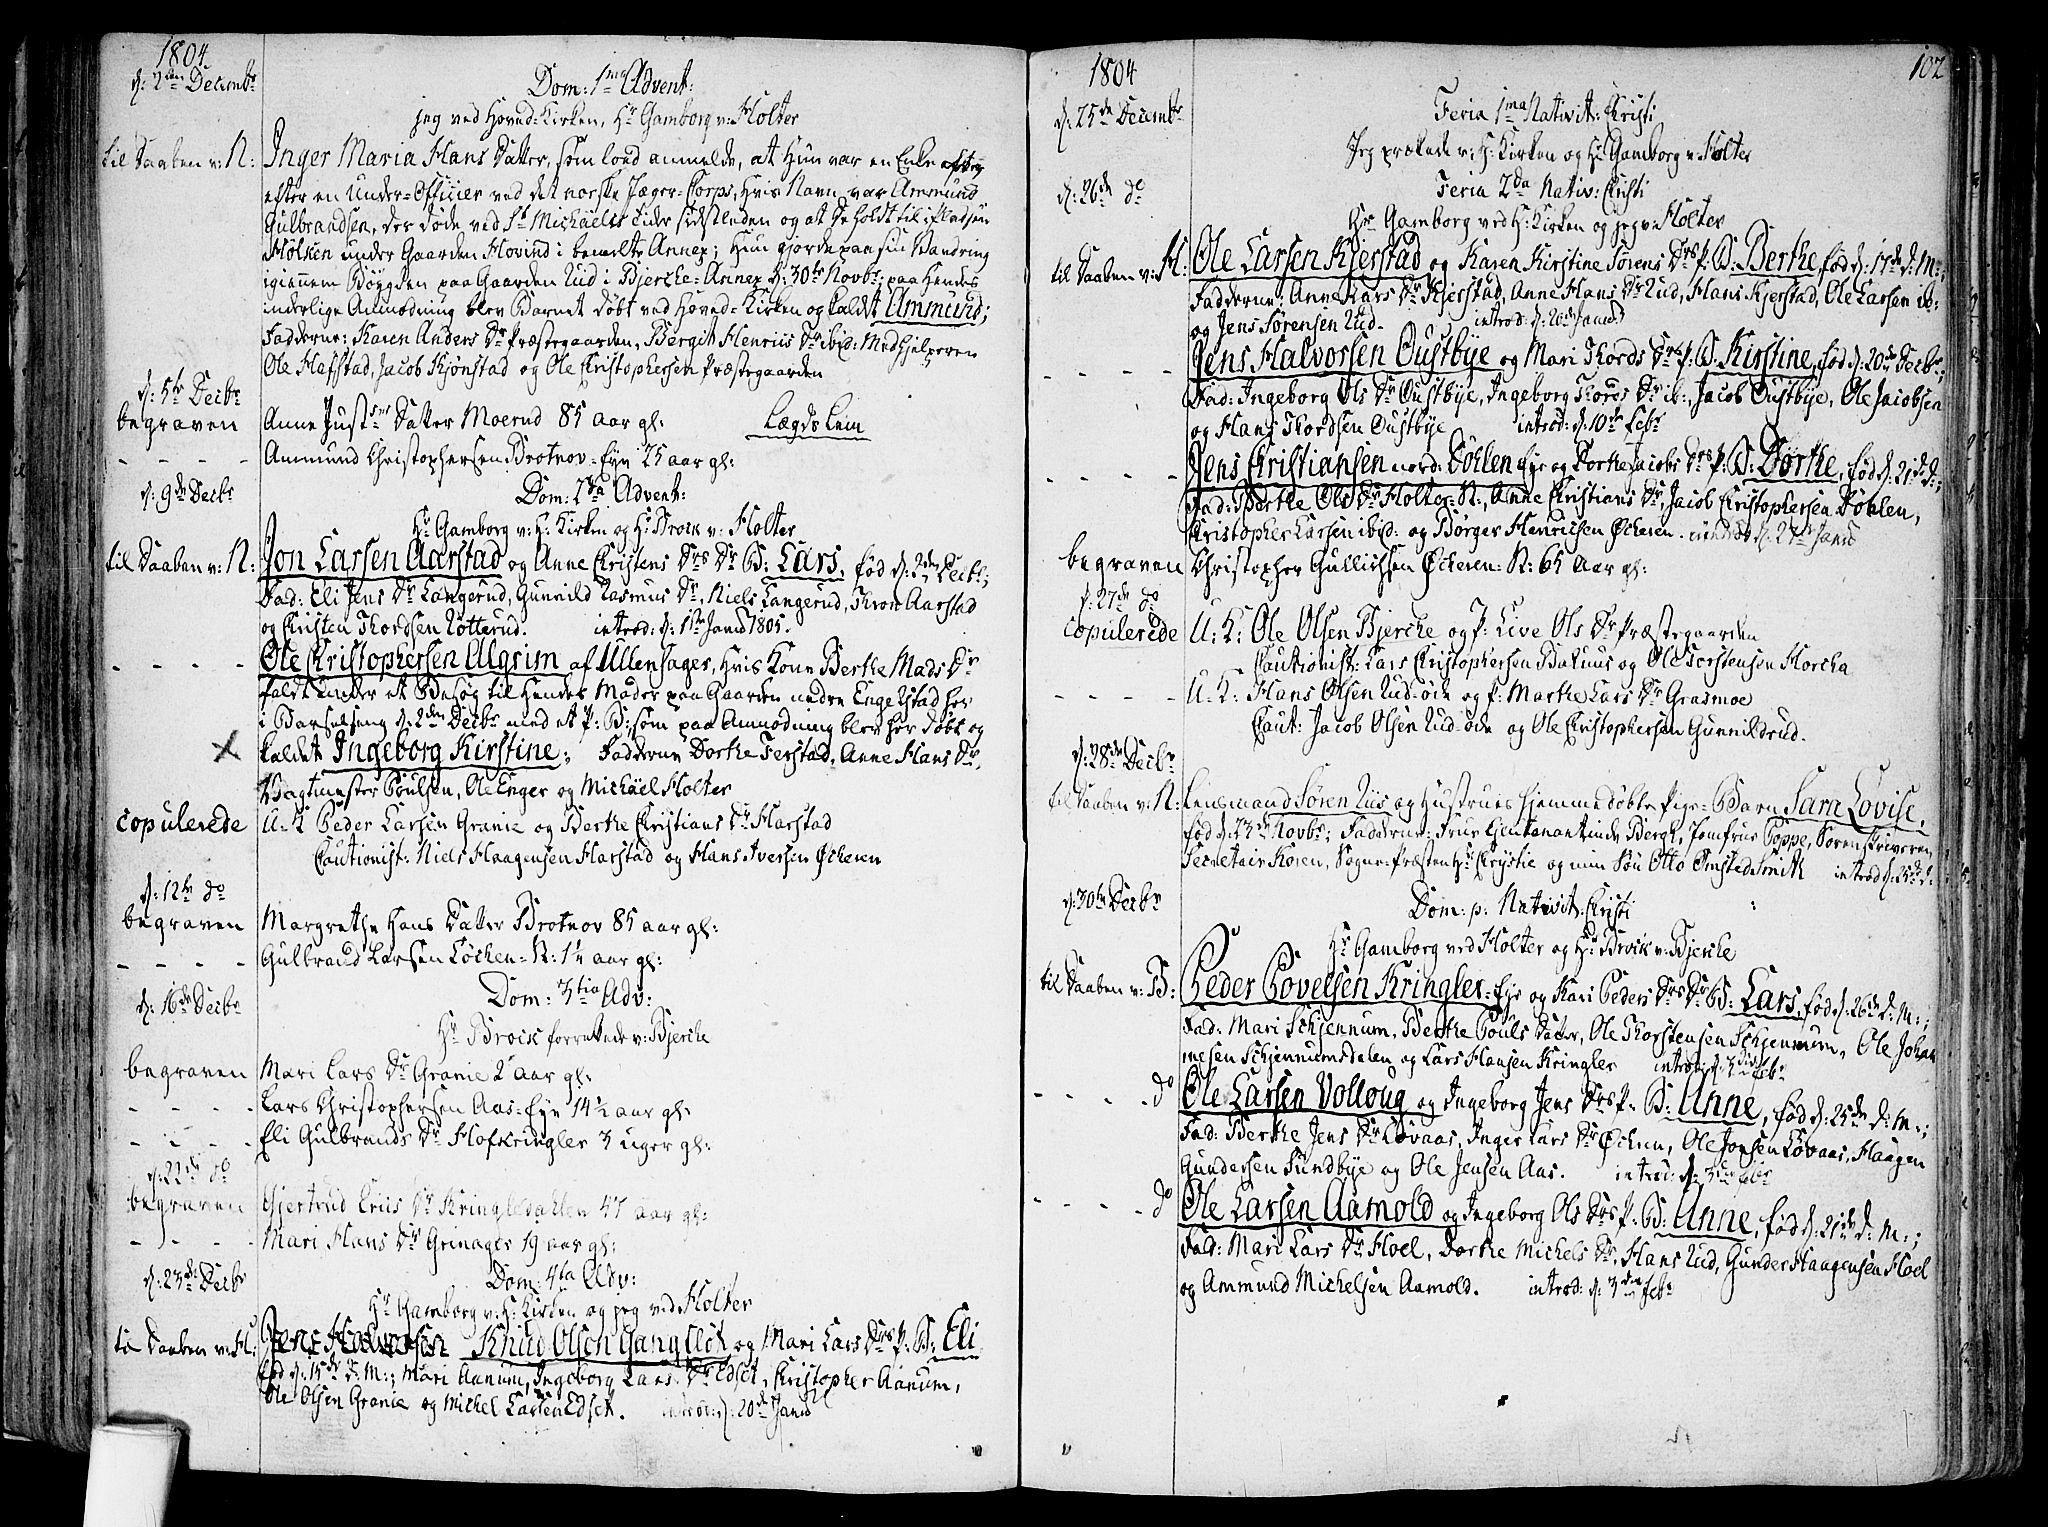 1804
d: 2den Decembr
Dom: 1ma Advent:
jeg ved Hoved-Kirken, Hr Gamborg v: Holter
til Daaben v: N: Inger Maria Hans Datter, som lod anmelde, at Hun var en Enke efter
efter en Under-Officier ved det norske Jæger-Corps, hvis Navn var Ammund
Gulbrandsen, der døde ved St Michaelis Tider sidstleden og at De holdt til i Pladsen
Holken under Gaarden Hovind i bemelte Annex; Hun gjorde paa sin Vandring
igiennem Bøygden paa Gaarden Rud i Bjercke-Annex d: 30te Novbr; paa Hendes
inderlige Anmodning blev Barnet døbt ved Hoved-Kirken og kaldet Ammund;
Fadderne: Karen Anders Dr Præstegaarden, Bergit Henriis Dr ibid: Medhjelperen
Ole Hafstad, Jacob Kjønstad og Ole Christophersen Præstegaarden
d: 5te Decbr
begraven Anne Just Datter Moerud 85 aar gl: Lægds Lem
- - - - Ammund Christophersen Brotnov-Eye 25 aar gl:
d: 9de Decbr
Dom: 2da Advent:
Hr Gamborg v: H: Kirken og Hr Brock v: Holter
til Daaben v: N: Jon Larsen Aarstad og Anne Christens Drs Dr B: Lars, fød d: 2den Decbr;
Fad: Eli Jens Dr Langerud, Gunnild Rasmus Dr, Niels Langerud, Thron Aarstad
og Christen Thordsen Rotterud. introd: d: 1ste Janv 1805.
- - - - Ole Christophersen Algrim af Ullensager, hvis Kone Berthe Mads Dr
faldt under et Besøg til Hendes Moder paa Gaarden nedre Engelstad her
i Barselseng d: 2den Decbr med et P: B: som paa Anmodning blev her døbt og
kaldet Ingeborg Kirstine; Fadderne Dorthe Ierstad, Anne Hans Dr,
Vagtmester Poulsen, Ole Enger og Michael Holter
copulerede U: K Peder Larsen Granie og Berthe Christians Dr Harstad
Cautionist: Niels Haagensen Harstad og Hans Iversen Økeren
d: 12te do
begraven Margrethe Hans Datter Brotnov 85 aar gl:
- - - - Gulbrand Larsen Løchen-N: 1¼ aar gl:
d: 16de Decbr
Dom: 3tia Adv:
Hr Brock forrettede v: Bjercke
begraven Mari Lars Dr Granie 2 aar gl:
- - - - Lars Christophersen Aas-Eye 14½ aar gl:
- - - - Eli Gulbrands Dr Hofkringler 3 uger gl:
d: 22de do
begraven Gjertrud Eriis Dr Kringledahlen 47 aar gl:
- - - - Mari Hans Dr Grinager 19 aar gl:
d: 23de Decbr
Dom: 4ta Adv:
Hr Gamborg v: H: Kirken og jeg ved Holter
til Daaben v: H: Jens Halvorsen Knud Olsen Gangsløt og Mari Lars Drs P: B: Eli
fød d: 15de d: M:; Mari Aanum, Ingeborg Lars Dr Edset, Christopher Aanum,
Ole Olsen Granie og Michel Larsen Edset. introd: d: 20de Janv
1804
102
d: 25de Decembr
Feria 1ma Nativit: Christi
Jeg prækede v: H: Kirken og Hr Gamborg v: Holter
d: 26de do
Feria 2da Nativ: Christi
Hr Gamborg ved H: Kirken og jeg v: Holter
til Daaben v: H: Ole Larsen Kjerstad og Karen Kirstine Sørens Drs P: B: Berthe, fød d: 17de d: M:;
Fadderne: Anne Lars Dr Kjerstad, Anne Hans Dr Rud, Hans Kjerstad, Ole Larsen ib:
og Jens Sørensen Rud. introd: d: 20de Janv
- - - - Jens Halvorsen Oustbye og Mari Thords Drs P: B: Kirstine, fød d: 20de Decbr;
Fad: Ingeborg Ols Dr Oustbye, Ingeborg Thords Dr ib:, Jacob Oustbye, Ole Jacobsen
og Hans Thordsen Oustbye introd: d: 10de Febr
- - - - Jens Christiansen nord: Døhlen Eye og Dorthe Jacobs Drs P: B: Dorthe, fød d: 21de d:;
Fad: Berthe Ols Dr Holter-N:, Anne Christians Dr, Jacob Christophersen Døhlen,
Christopher Larsen ibid: og Børger Henricsen Økeren. introd d: 27de Janv
begraven Christopher Gullichsen Økeren: N: 65 Aar gl:
d: 27de do
copulerede U: K: Ole Olsen Bjercke og P: Live Ols Dr Præstegaarden
Cautionist: Lars Christophersen Bakuus og Ole Torstensen Horcha
- - - - U: K: Hans Olsen Rud-øde og P: Marthe Lars Dr Grasmoe
Caut: Jacob Olsen Rud-øde og Ole Christophersen Gunnildrud.
d: 28de Decbr
til Daaben v: N: Lensmand Søren Riis og Hustrues hjemmedøbte Pige-Barn Sara Lovise,
fød d: 23de Novbr; Fadderne: Frue Lieutenantinde Bergh, Jomfrue Poppe, Sorenskriveren
Secretair Koren, Sogne-Præsten Hr Crystie og min Søn Otto Omsted Smith introd d: 25de d:
d: 30te Decbr
Dom: p: Nativit: Christi
Hr Gamborg ved Holter og Hr Brock v: Bjercke
til Daaben v: B: Peder Povelsen Kringler-Eye og Kari Peders Drs Dr B: Lars, fød d: 26de d: M:;
Fad: Mari Schjennum, Berthe Pouls Datter, Ole Thorstensen Schjennum, Ole Johan
nesen Schjennumsdalen og Lars Hansen Kringler introd: d: 3die Febr
- - - - do Ole Larsen Volloug og Ingeborg Jens Drs P: B: Anne, fød d: 25de d: M:;
Fad: Berthe Jens Dr Løvaas, Inger Lars Dr Økern, Ole Jonsen Løvaas, Haagen
Gundersen Sundbye og Ole Jensen Aas. introd: d: 3die Febr
- - - - do Ole Larsen Aamold og Ingeborg Ols Drs P: B: Anne, fød d: 21de d: M:;
Fad: Mari Lars Dr Hoel, Dorthe Michels Dr, Hans Rud, Gunder Haagensen Hoel
og Ammund Michelsen Aamold. introd: d: 3die Febr